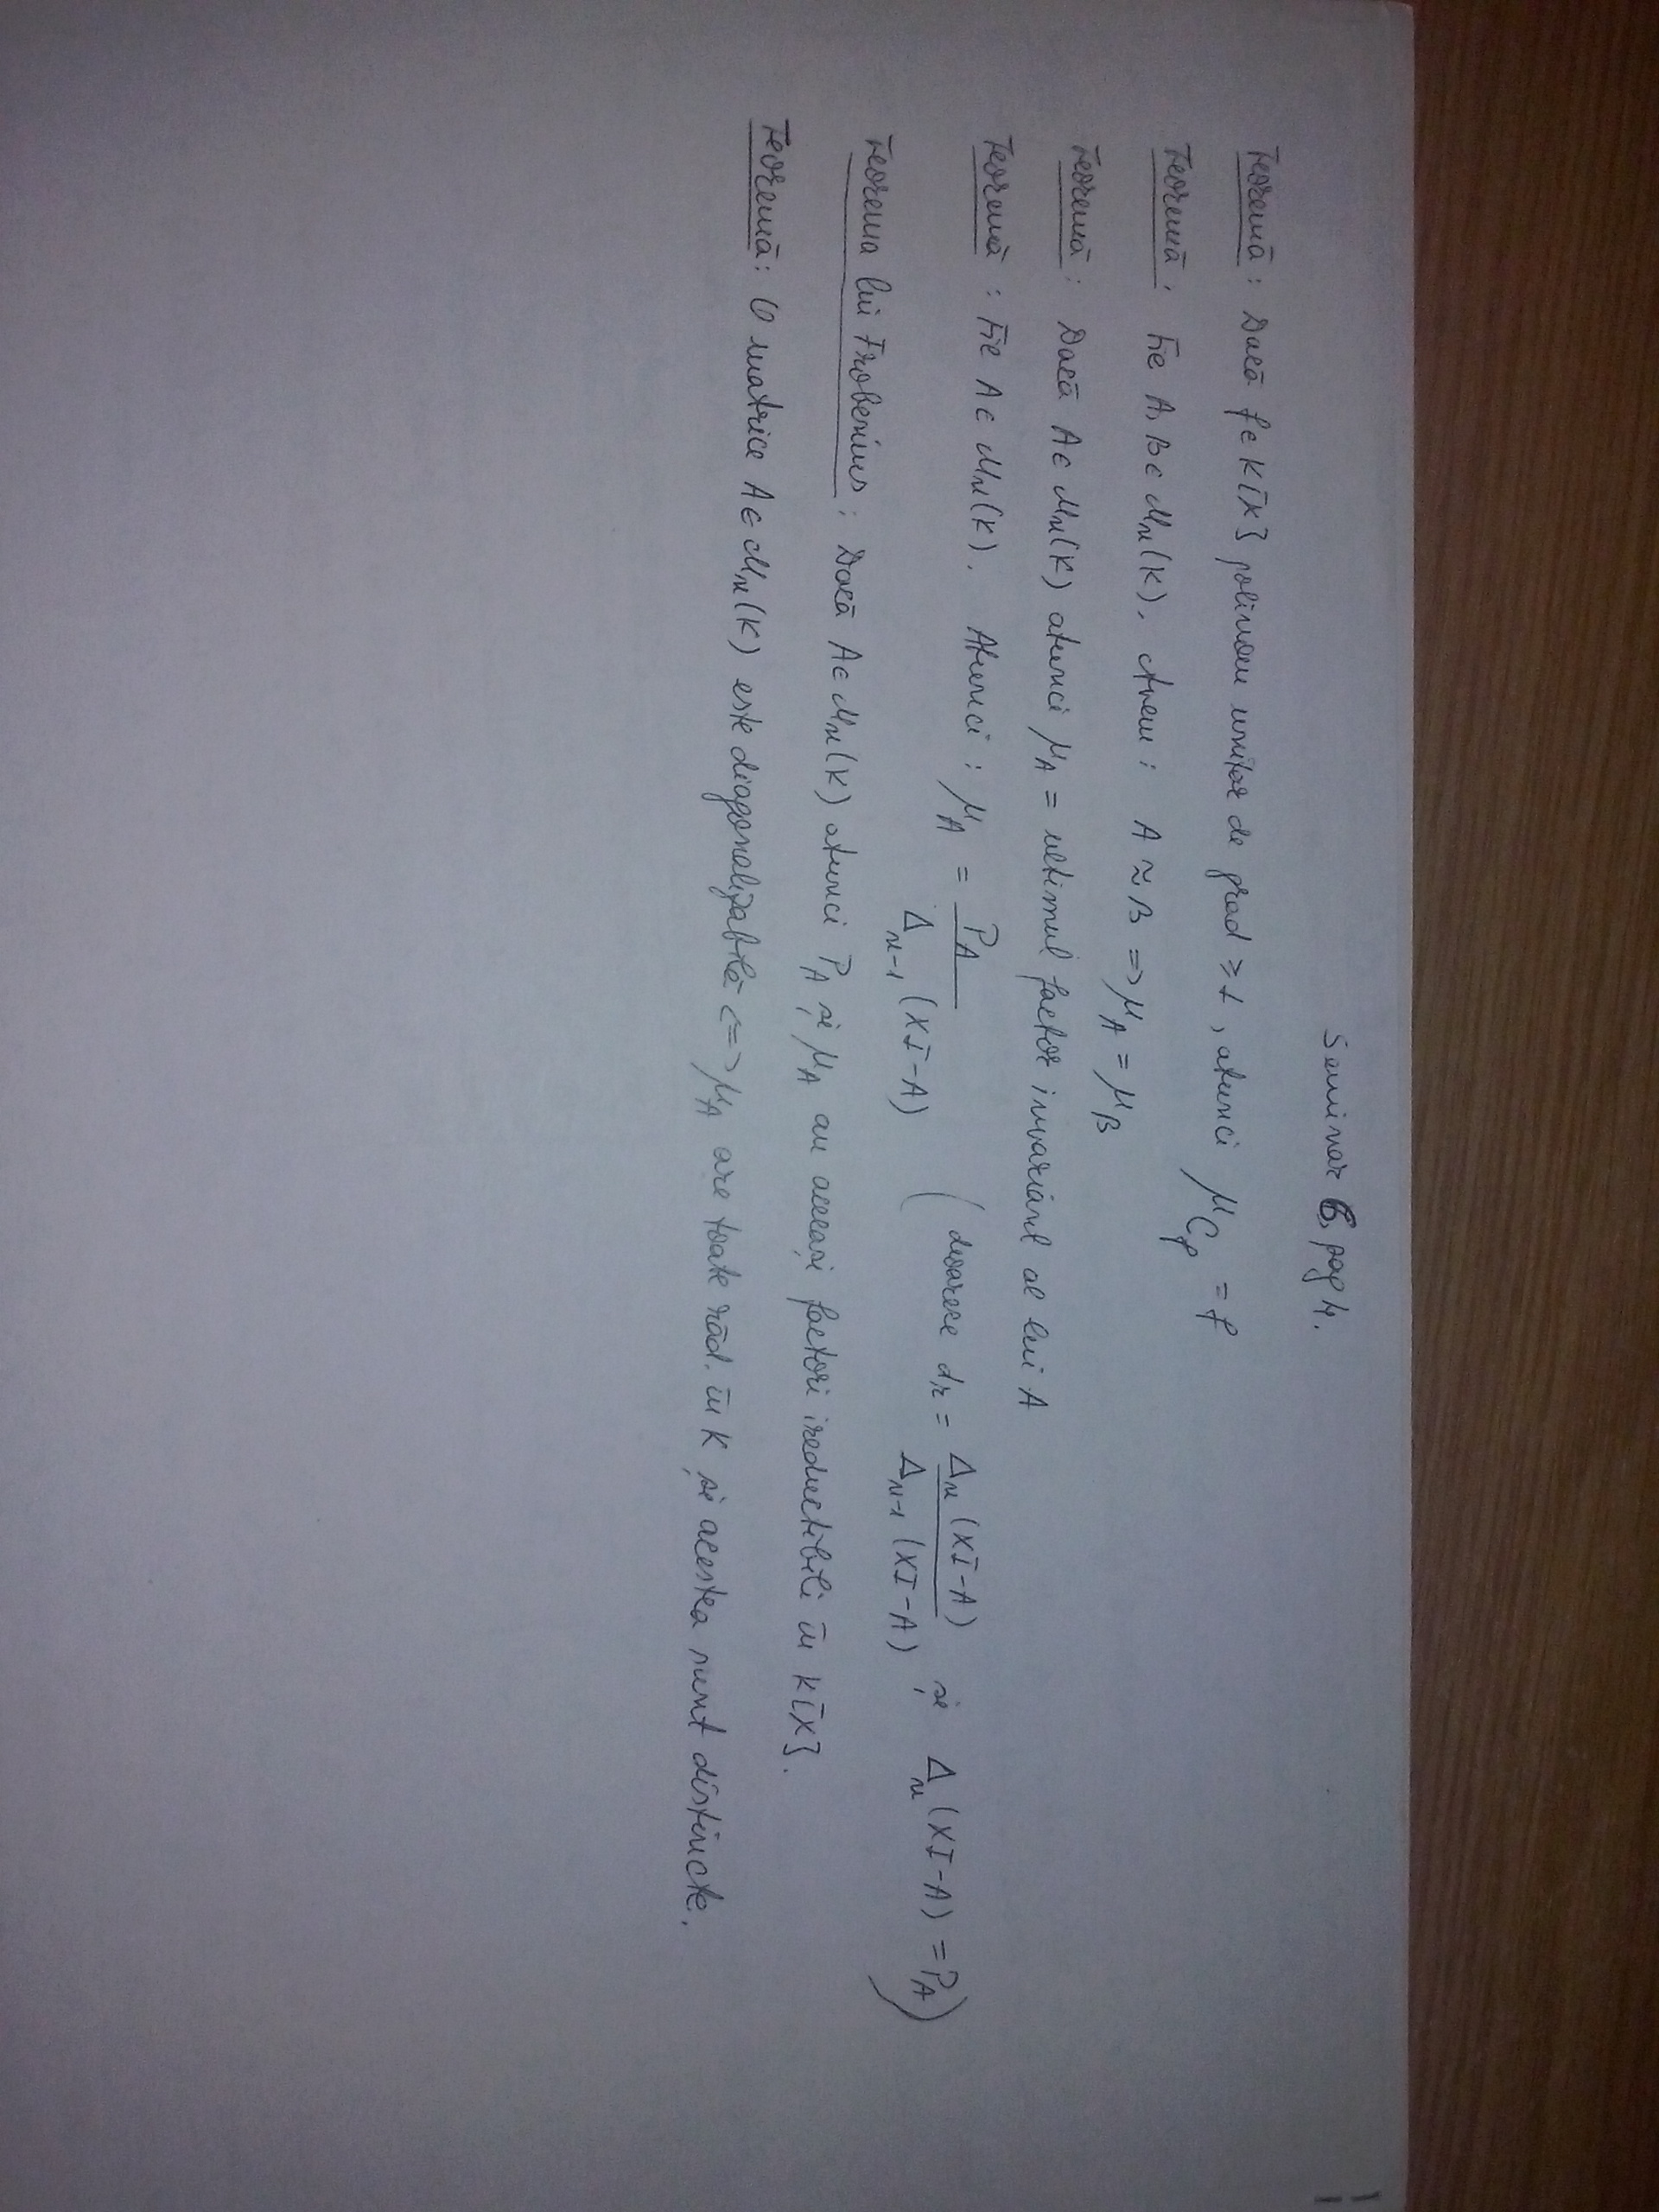 Seminar 6, pag 4.
Teoremă: Dacă f ∈ K[X] polinom unitar de grad ≥ 1, atunci μ_{C_f} = f
Teoremă: Fie A, B ∈ M_n(K). Avem: A ≈ B => μ_A = μ_B
Teoremă: Dacă A ∈ M_n(K) atunci μ_A = ultimul factor invariant al lui A
Teoremă: Fie A ∈ M_n(K). Atunci: μ_A = P_A / Δ_{n-1}(XI-A) (deoarece d_n = Δ_n(XI-A) / Δ_{n-1}(XI-A) și Δ_n(XI-A) = P_A)
Teorema lui Frobenius: Dacă A ∈ M_n(K) atunci P_A și μ_A au aceeași factori ireductibili în K[X].
Teoremă: O matrice A ∈ M_n(K) este diagonalizabilă <=> μ_A are toate răd. în K și acestea sunt distincte.